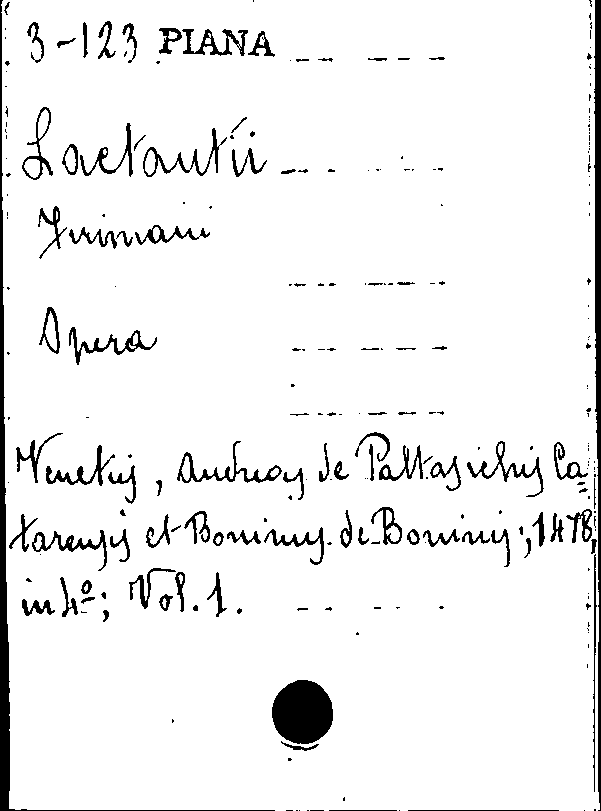 3-123 PIANA
Lactantii
Firimani
Opera
Venetiis, Andreas de Paltasichis Ca=
tarensis et Boninus de Boninis; 1478,
in 4º; Vol. 1.